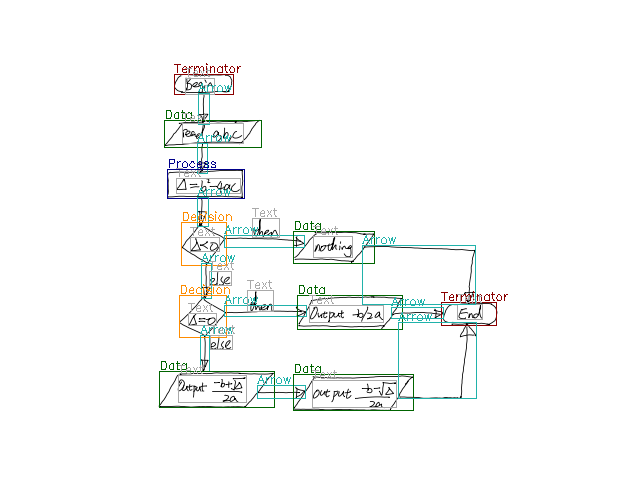 Terminator
Text
begin
Arrow
Data
Text
read a,b,c
Arrow
Process
Text
Δ=b²-4ac
Arrow
Decision
Text
Δ<0
Arrow
Text
then
Data
Text
nothing
Arrow
Arrow
Text
else
Decision
Text
Δ=0
Arrow
Text
then
Data
Text
Output -b/2a
Arrow
Terminator
Text
End
Arrow
Arrow
Text
else
Data
Text
Output -b+√Δ/2a
Arrow
Data
Text
output -b-√Δ/2a